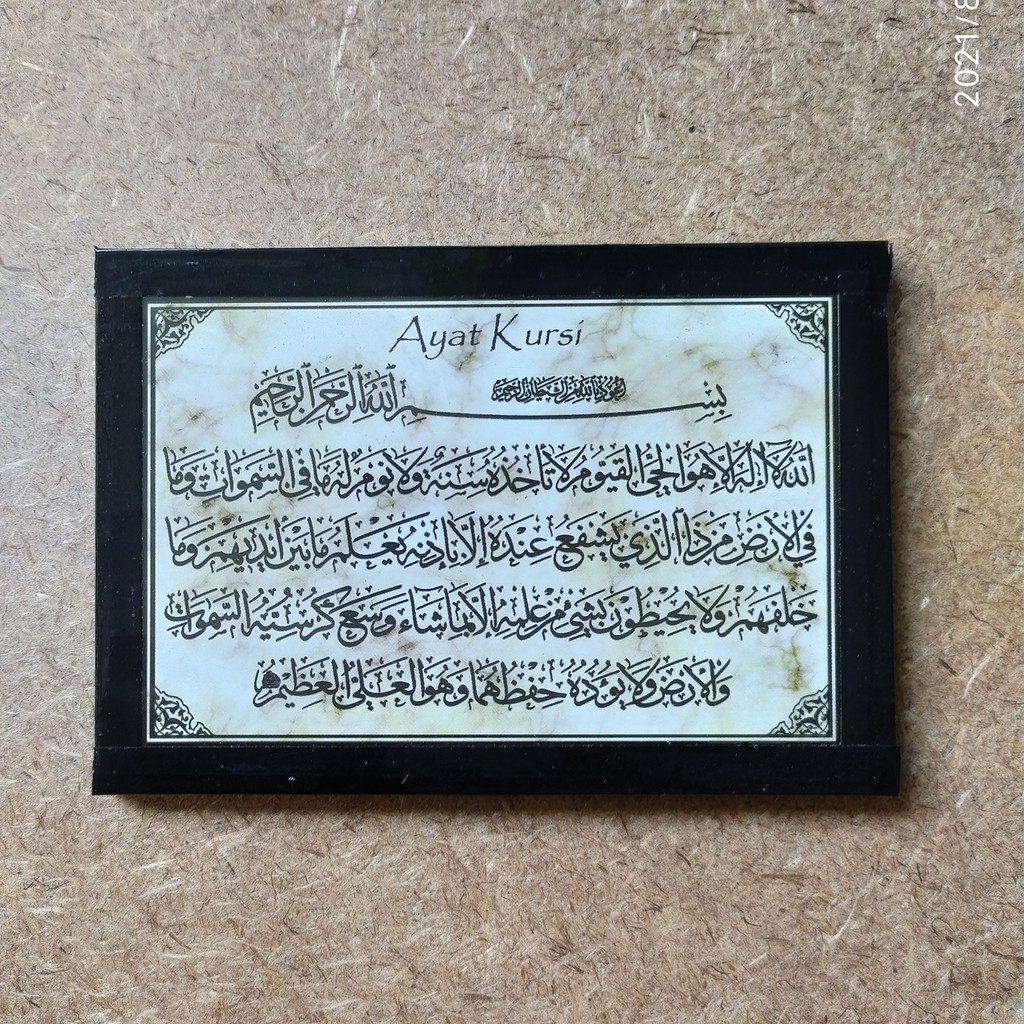 2021/8
Ayat Kursi
أعوذ بالله من الشيطان الرجيم
بِسْمِ ٱللَّهِ ٱلرَّحْمَٰنِ ٱلرَّحِيمِ
اَللّٰهُ لَا إِلٰهَ إِلَّا هُوَ الْحَيُّ الْقَيُّومُ لَا تَأْخُذُهُ سِنَةٌ وَلَا نَوْمٌ لَهُ مَا فِي السَّمٰوَاتِ وَمَا
فِي الْأَرْضِ مَنْ ذَا الَّذِي يَشْفَعُ عِنْدَهُ إِلَّا بِإِذْنِهِ يَعْلَمُ مَا بَيْنَ أَيْدِيهِمْ وَمَا
خَلْفَهُمْ وَلَا يُحِيطُونَ بِشَيْءٍ مِنْ عِلْمِهِ إِلَّا بِمَا شَاءَ وَسِعَ كُرْسِيُّهُ السَّمٰوَاتِ
وَالْأَرْضَ وَلَا يَؤُدُهُ حِفْظُهُمَا وَهُوَ الْعَلِيُّ الْعَظِيمُ